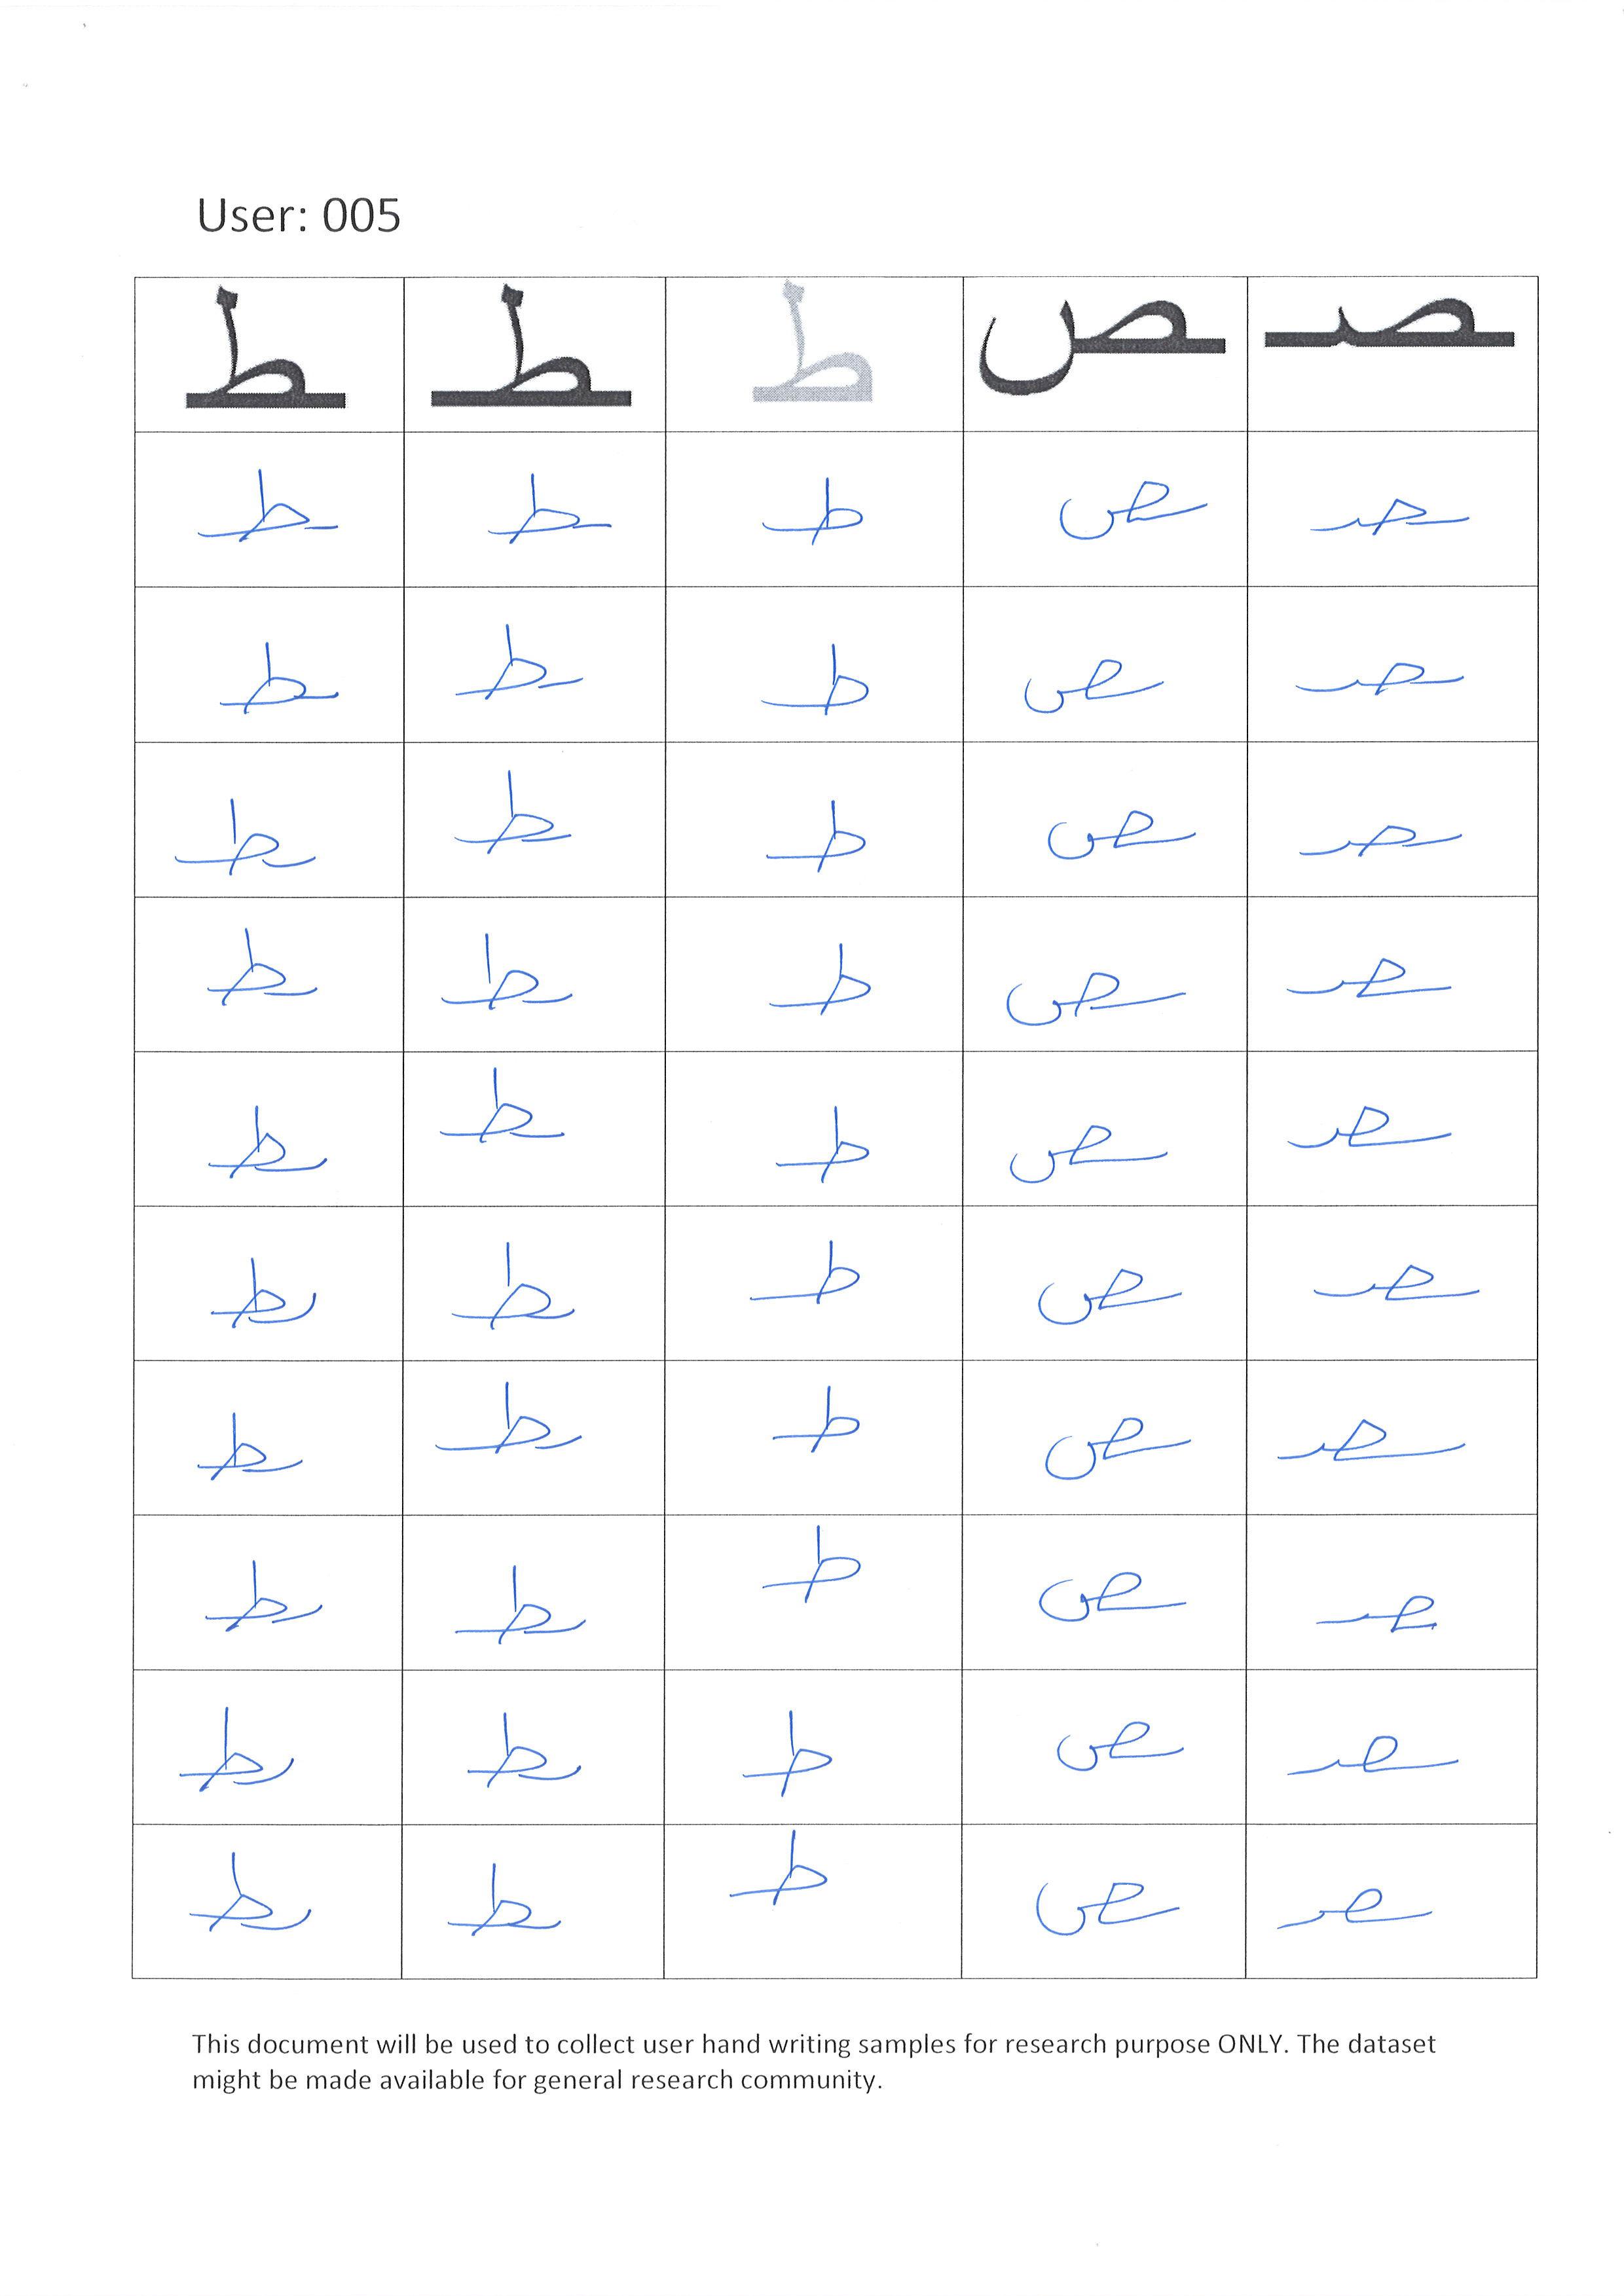 User: 005
ـصـ ـص ط ـطـ ـط
ـصـ ـص ط ـطـ ـط
ـصـ ـص ط ـطـ ـط
ـصـ ـص ط ـطـ ـط
ـصـ ـص ط ـطـ ـط
ـصـ ـص ط ـطـ ـط
ـصـ ـص ط ـطـ ـط
ـصـ ـص ط ـطـ ـط
ـصـ ـص ط ـطـ ـط
ـصـ ـص ط ـطـ ـط
ـصـ ـص ط ـطـ ـط
This document will be used to collect user hand writing samples for research purpose ONLY. The dataset
might be made available for general research community.